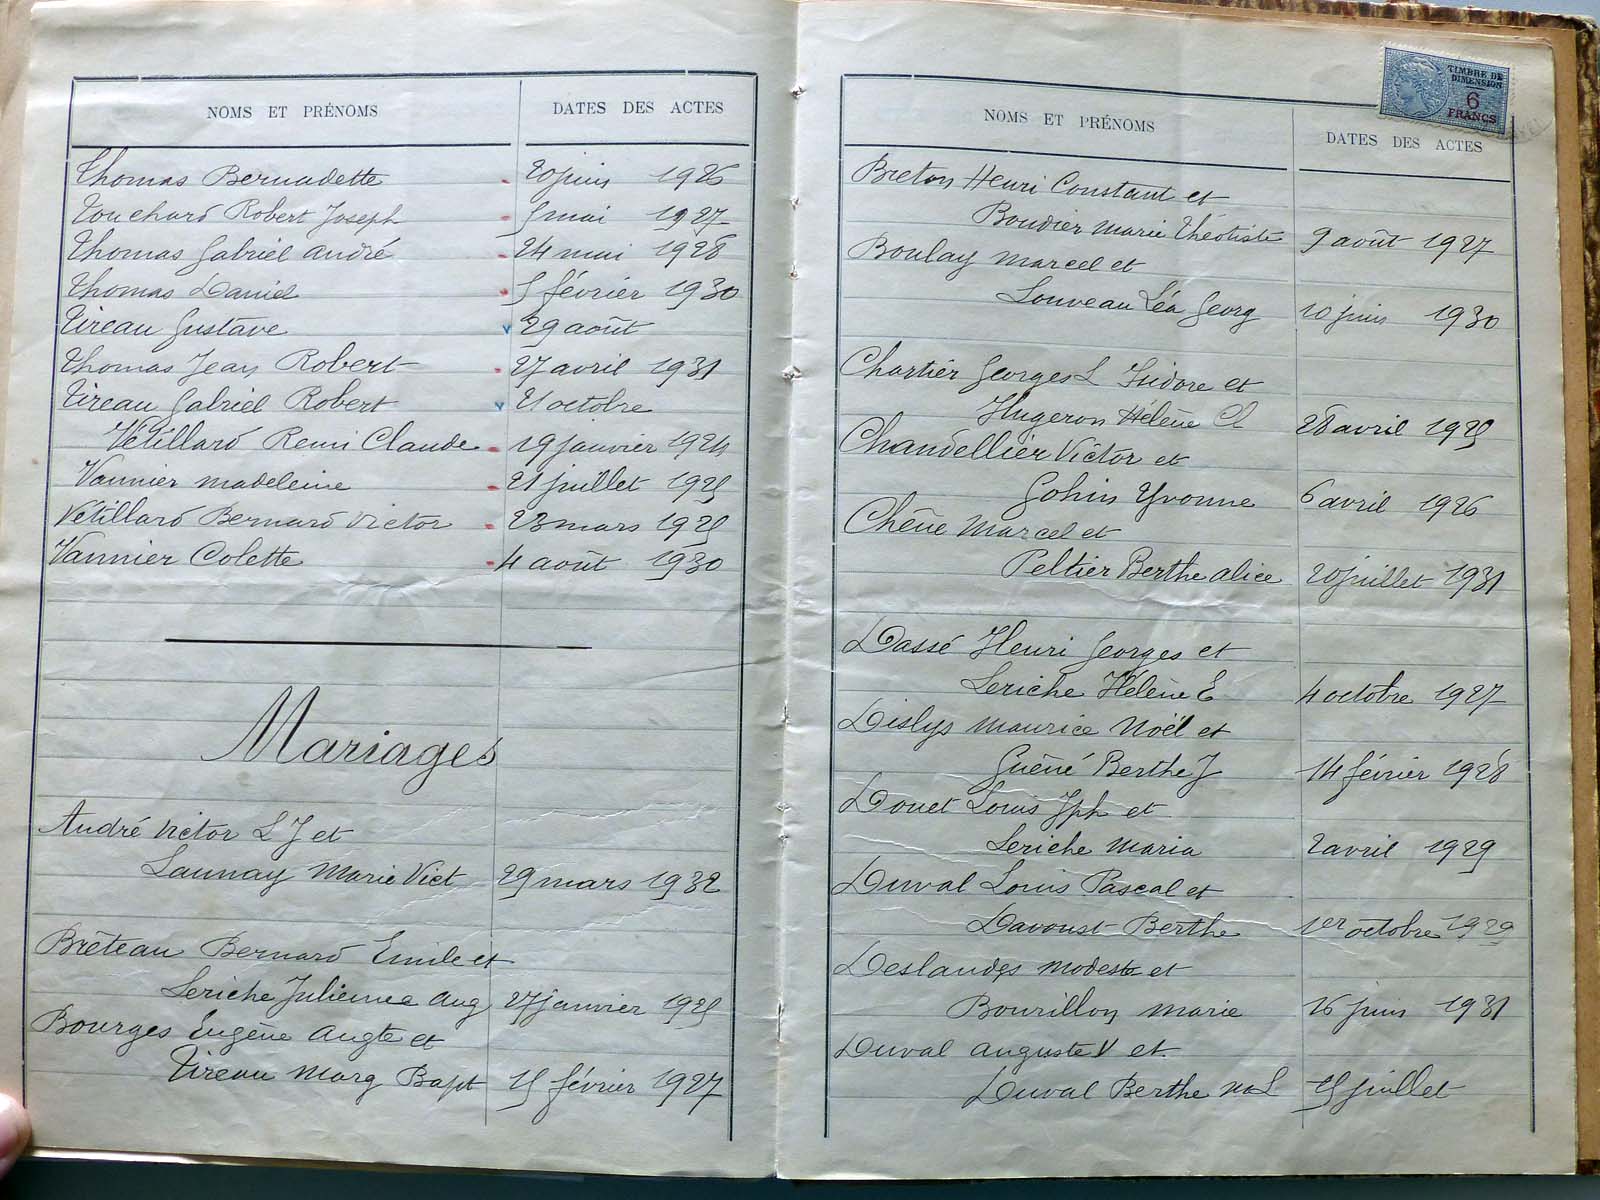 NOMS ET PRÉNOMS DATES DES ACTES
Thomas Bernadette 20 juin 1926
Touchard Robert Joseph 5 mai 1927
Thomas Gabriel André 24 mai 1928
Thomas Daniel 5 février 1930
Tireau Gustave v 29 août
Thomas Jean Robert 27 avril 1931
Tireau Gabriel Robert v 21 octobre
Vétillard Remi Claude 19 janvier 1924
Vannier Madeleine 21 juillet 1925
Vétillard Bernard Victor 23 mars 1925
Vannier Colette 4 août 1930
Mariages
André Victor L J et
Launay Marie Vict 29 mars 1932
Bréteau Bernard Emile et
Leriche Julienne Aug 27 janvier 1925
Bourges Eugène Augte et
Tireau Marg Bapt 15 février 1927
TIMBRE DE
DIMENSION
6
FRANCS
NOMS ET PRÉNOMS DATES DES ACTES
Breton Henri Constant et
Boudier Marie Théotiste 9 août 1927
Boulay Marcel et
Louveau Léa Georg 10 juin 1930
Chartier Georges L Isidore et
Hugeron Hélène Cl 28 avril 1925
Chandellier Victor et
Gohin Yvonne 6 avril 1926
Chêne Marcel et
Peltier Berthe Alice 20 juillet 1931
Dassé Henri Georges et
Leriche Hélène E 4 octobre 1927
Dislys Maurice Noël et
Guéné Berthe J 14 février 1928
Douet Louis Jph et
Leriche Maria 2 avril 1929
Duval Louis Pascal et
Davoust Berthe 1er octobre 1929
Deslandes Modeste et
Bourillon Marie 16 juin 1931
Duval Auguste V et
Duval Berthe M L 15 juillet